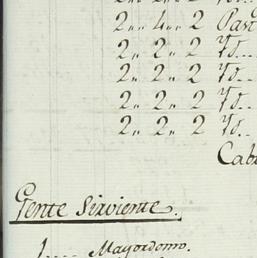 2.. 4.. 2 Past
2.. 2.. 2 Yd...
2.. 2.. 2 Yd..
2.. 2.. 2 Yd..
2.. 2.. 2 Yd..
Cab
Gente Sirviente.
1.... Mayordomo.